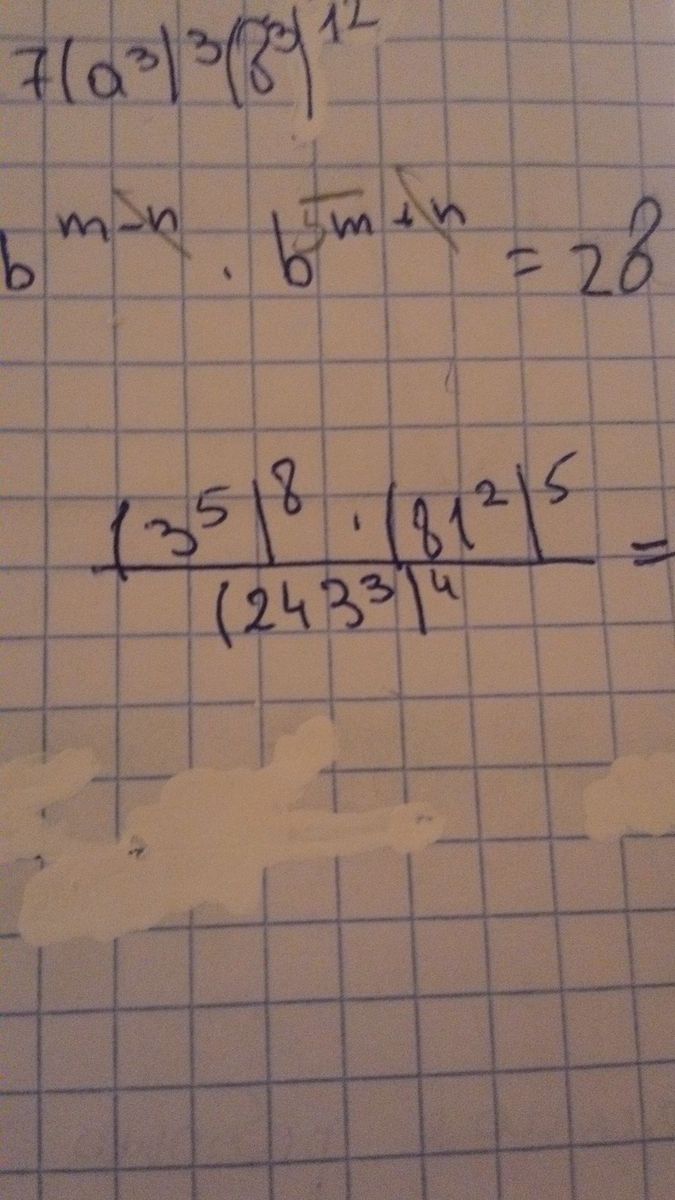 7(a³)³(b³)¹²
b^{m-n} · b^{5m+n} = 28
\frac{(3⁵)⁸ · (81²)⁵}{(243³)⁴} =